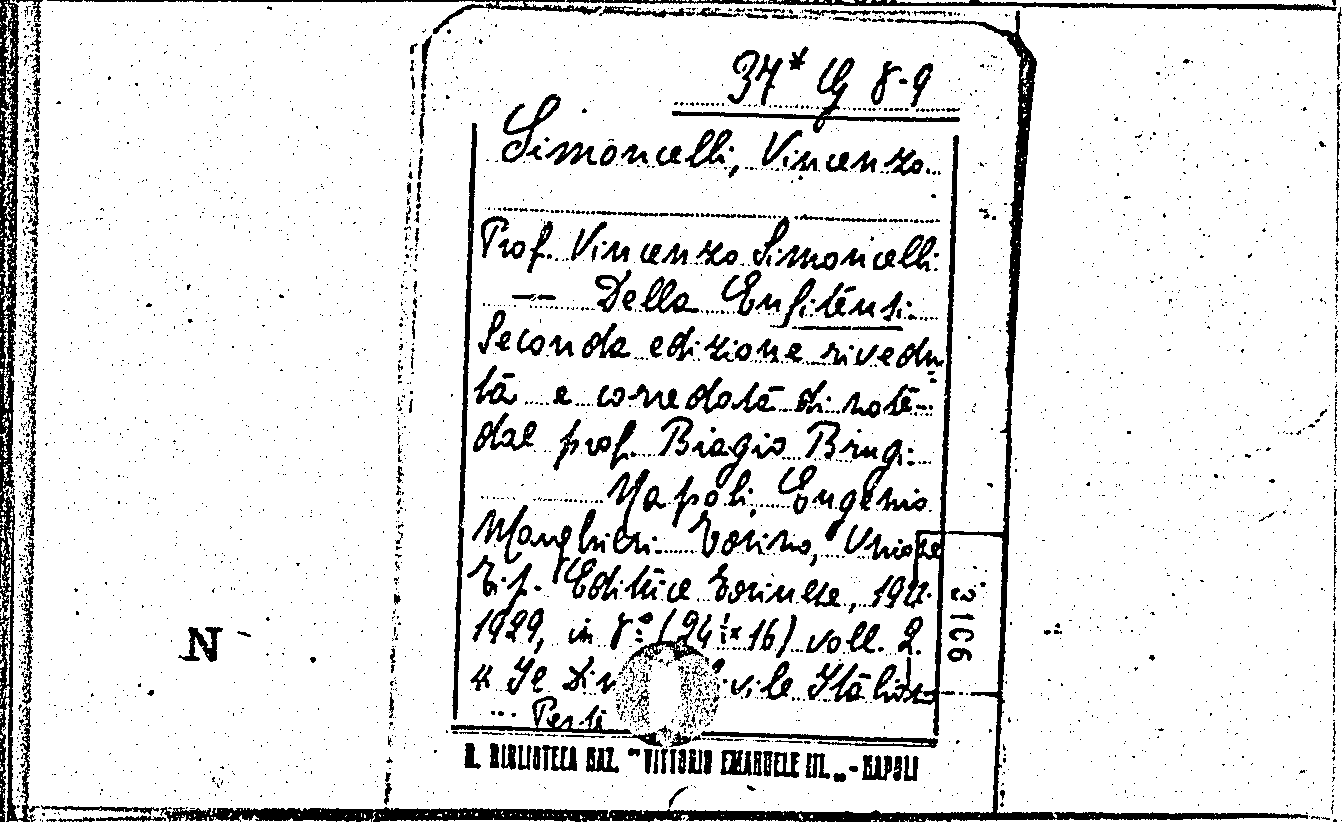 34* G 8-9
Simoncelli, Vincenzo
Prof. Vincenzo Simoncelli
-- Della Enfitensi.
Seconda edizione rivedu=
ta e corredata di note
dal prof. Biagio Brugi.
Napoli, Eugenio
Marghieri. Torino, Unione
Tip. Editrice Torinese, 1922-
1929, in 8° (24 1/2 x 16) voll. 2.
« Il Di ivile Italiano
Parte
3106
N
R. BIBLIOTECA NAZ. "VITTORIO EMANUELE III„ - NAPOLI